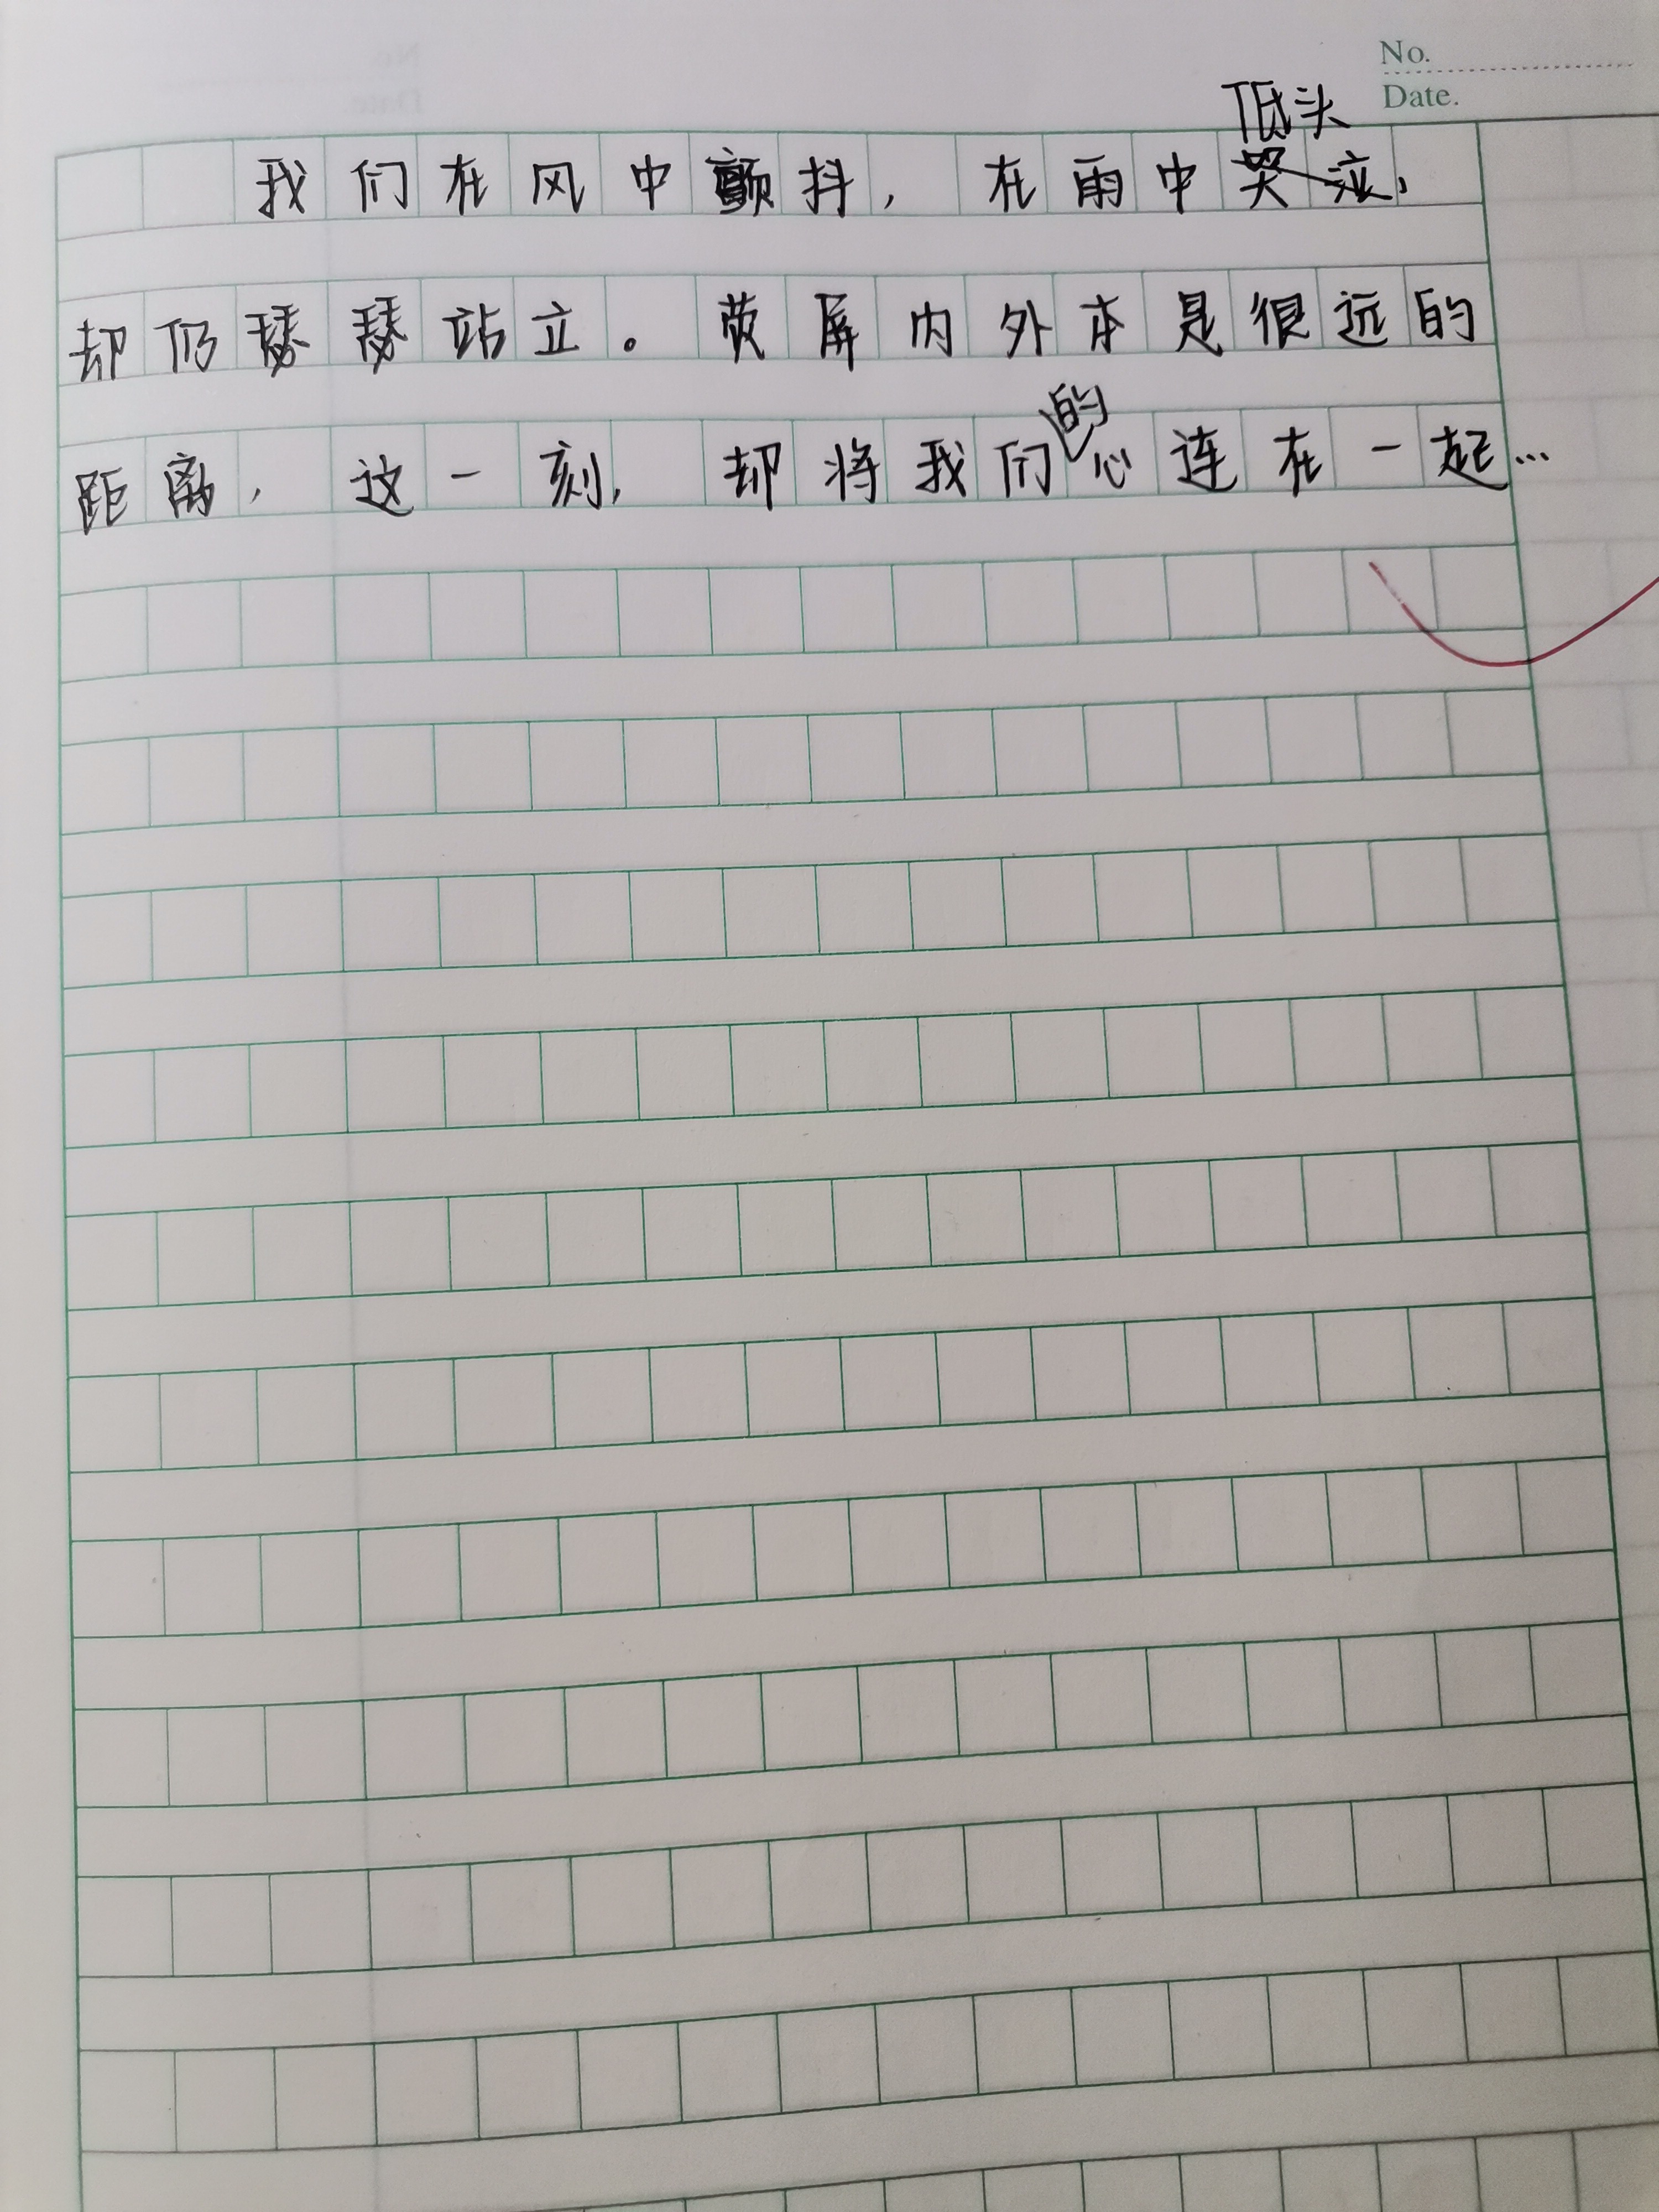 No.
Date.
低头
我们在风中颤抖,在雨中哭泣,
却仍瑟瑟站立。荧屏内外本是很远的
的
距离,这一刻,却将我们心连在一起…